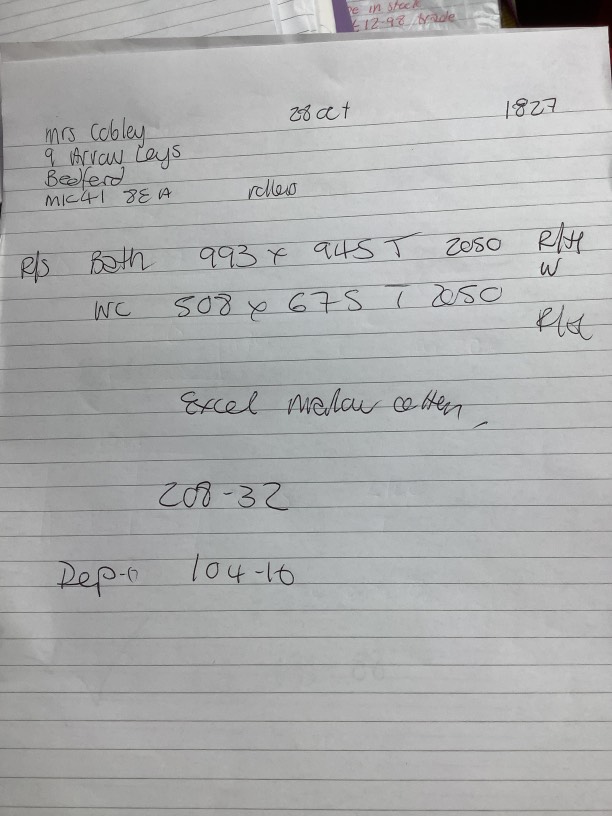 e in stock
£12-98 trade
28 oct 1827
Mrs Cobley
9 Arrow Leys
Bedford
MK41 8EA rollers
R/S Bath 993 x 945 T 2050 R/H
W
WC 508 x 675 T 2050
R/H
Excel Mallow cotten
208-32
Dep-o 104-16